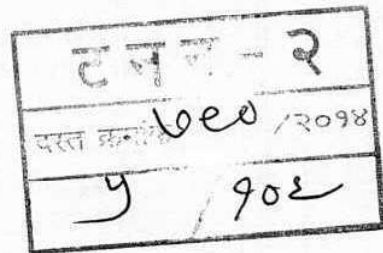 ट न न - २
दस्त क्रमांक ७९० /२०१४
५ / १०६